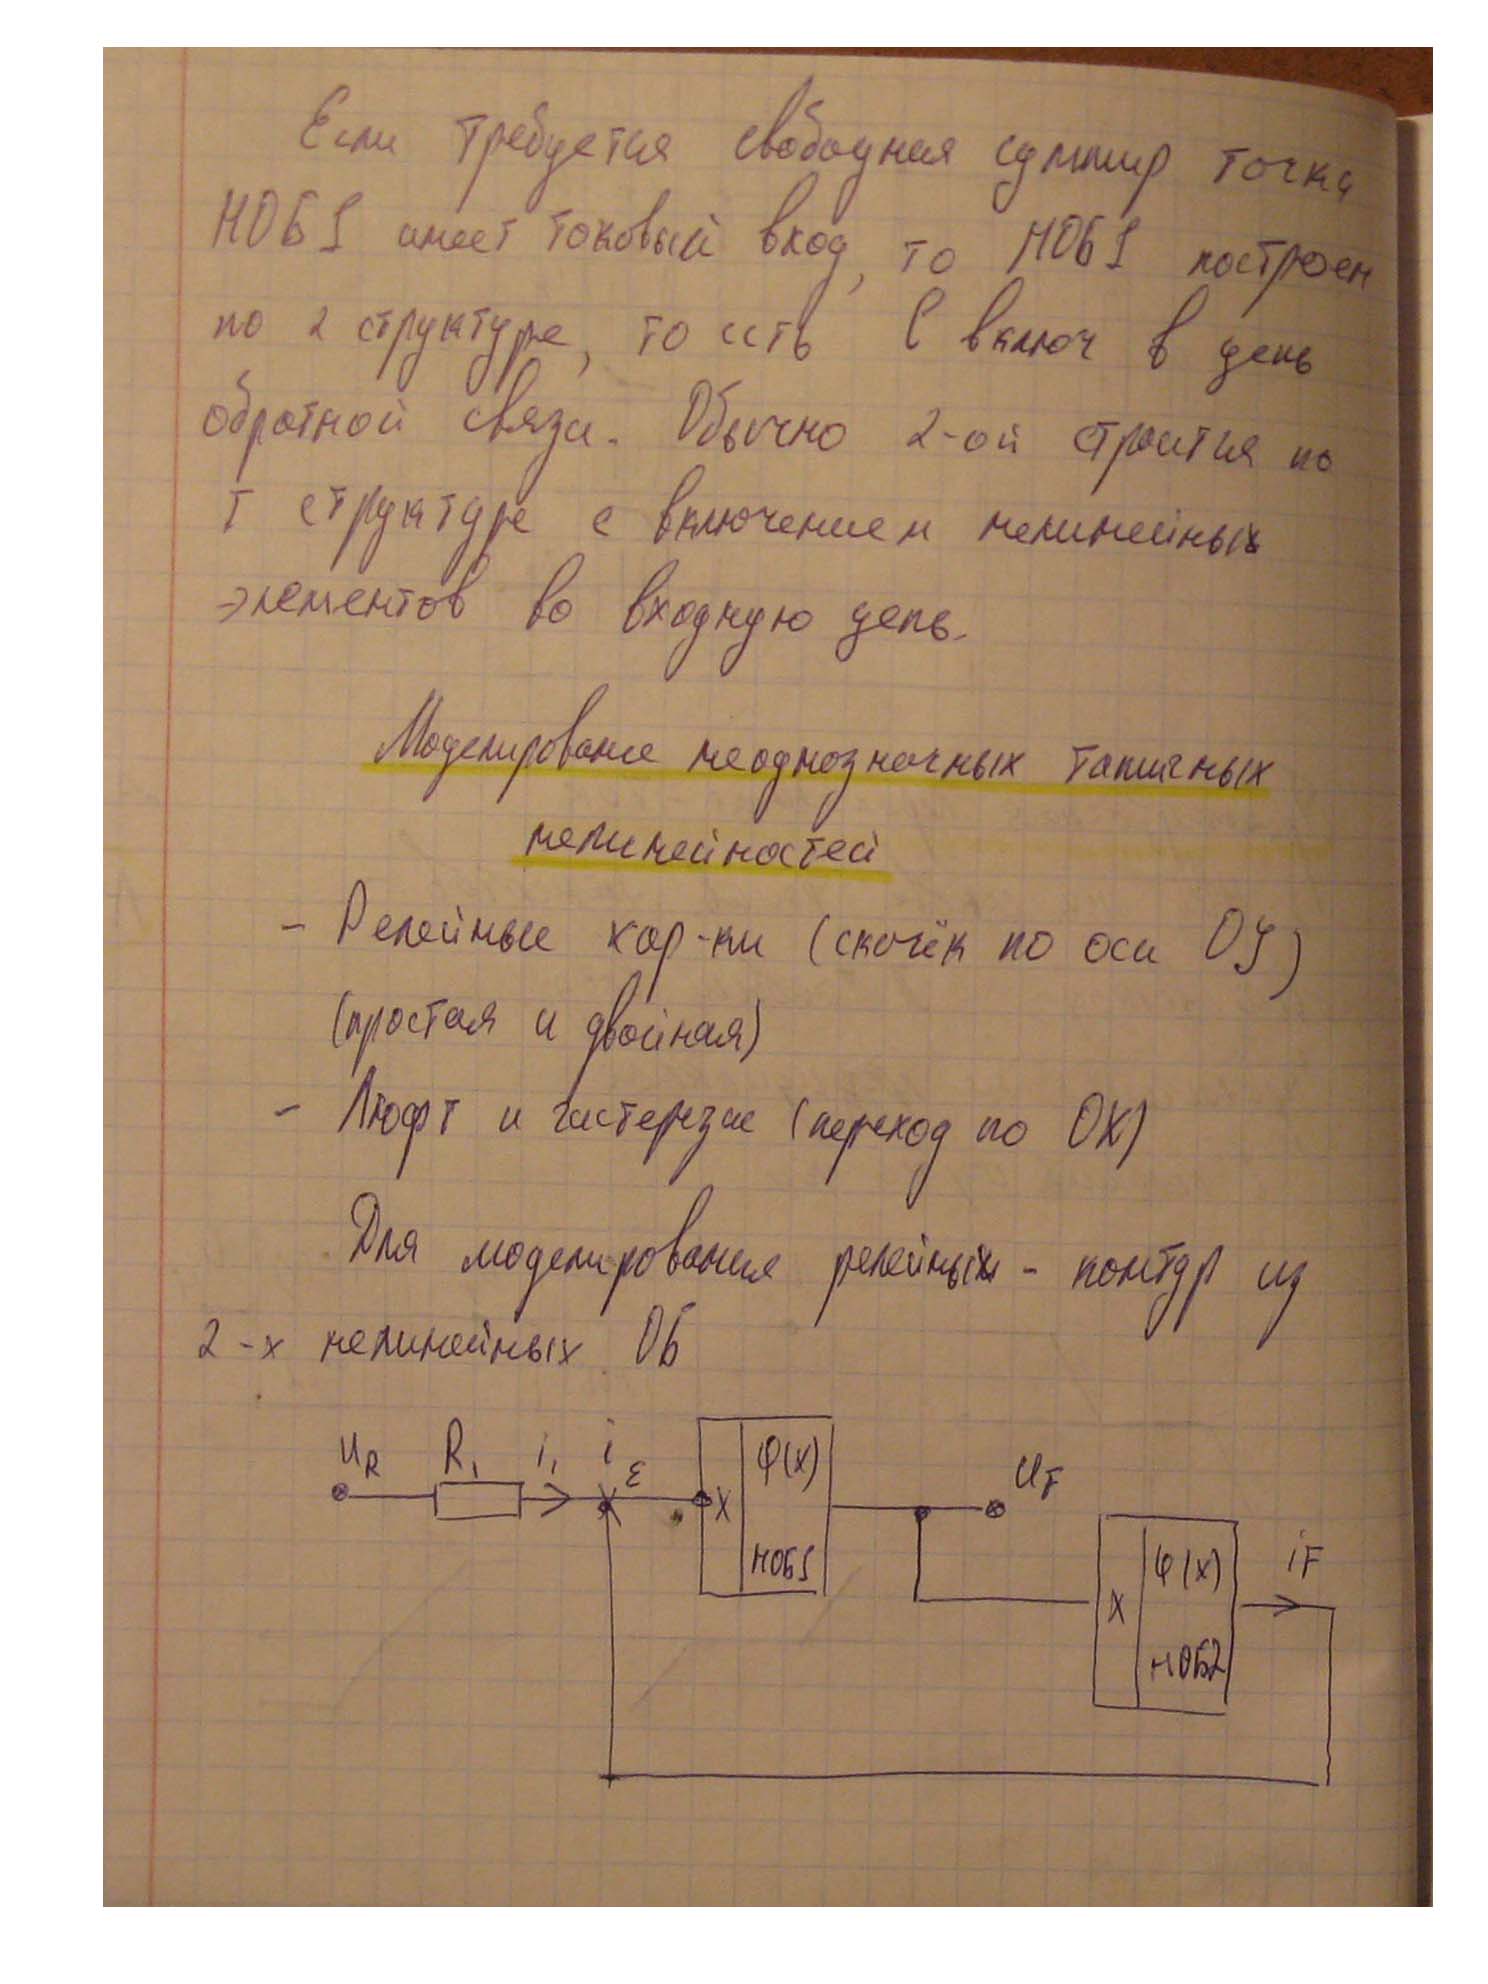 Если требуется свободная суммир точка
НОБ1 имеет токовый вход, то НОБ1 построен
по 2 структуре, то есть С включ в цепь
обратной связи. Обычно 2-ой строится по
Т структуре с включением нелинейных
элементов во входную цепь.
Моделирование неоднозначных типичных
нелинейностей
- Релейные хар-ки (скочёк по оси OY)
(простая и двойная)
- Люфт и гистерезис (переход по OX)
Для моделирования релейных - контур из
2-х нелинейных ОБ
UR R1 i1 i ε X φ(x) НОБ1 UF
X φ(x) НОБ2 iF